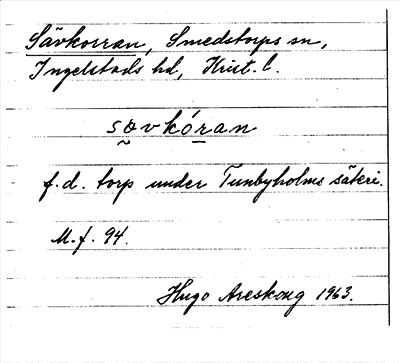 Sävkorran, Smedstorps sn,
Ingelstads hd, Krist. l.
søvkóran
f.d. torp under Tunbyholms säteri.
M.f. 94.
Hugo Areskoug 1963.